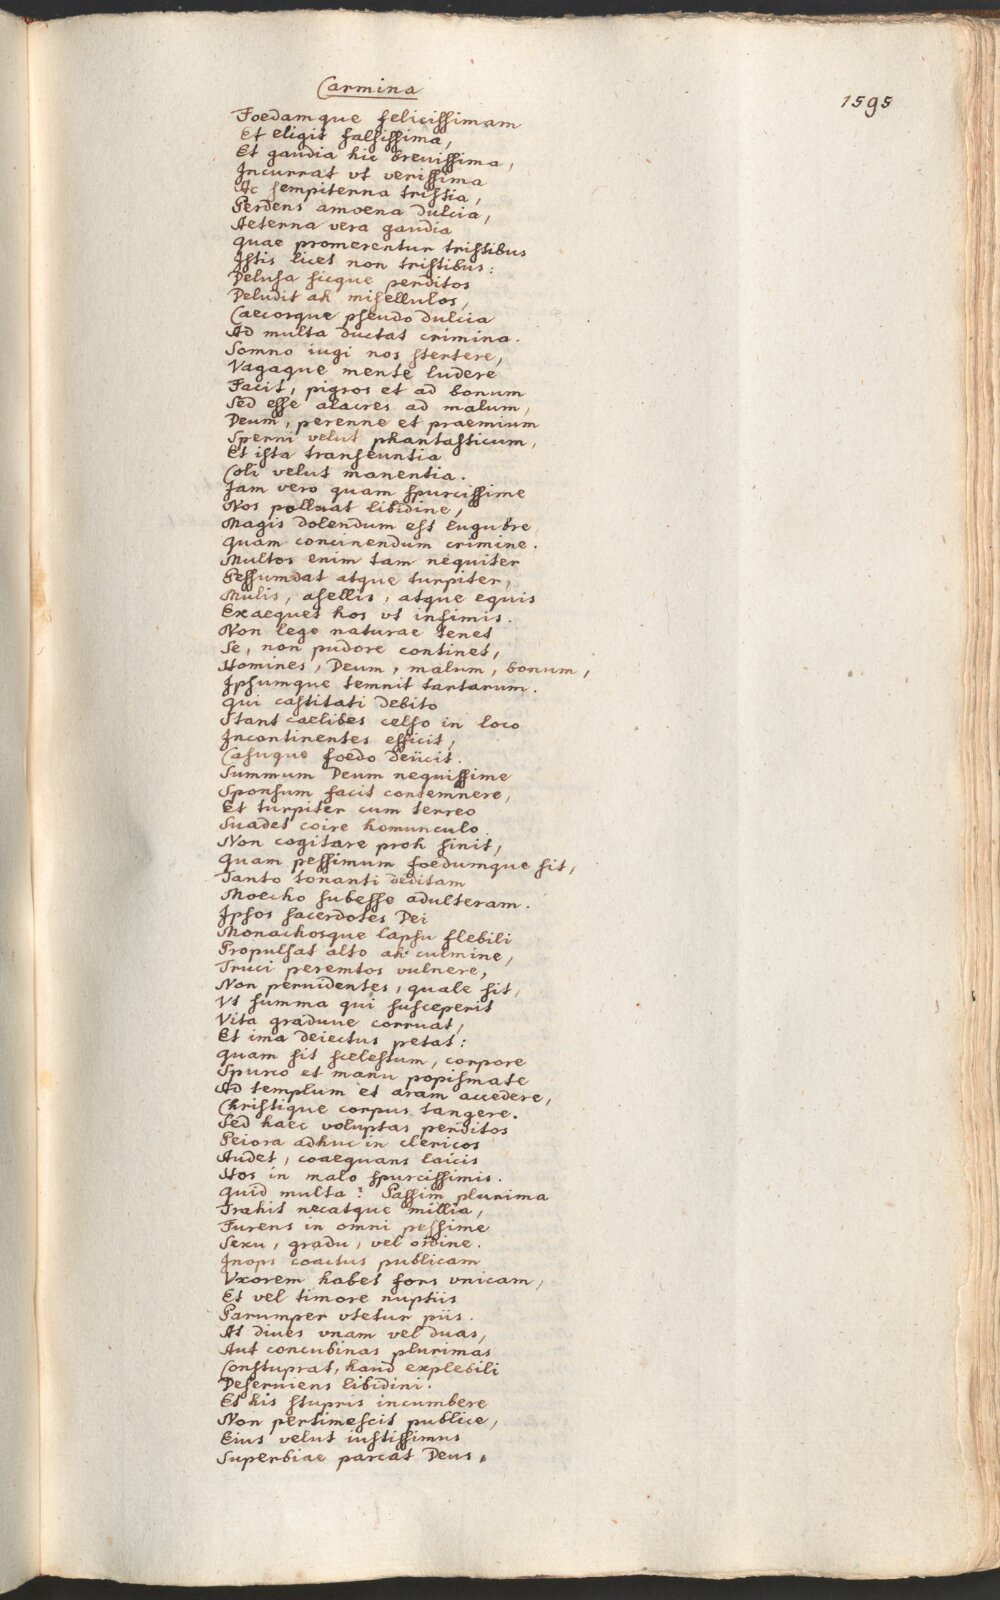 Carmina
1595
Foedamque felicissimam
Et eligit falsissima,
Et gaudia hic brevissima,
Incurrat vt verissima
Ac sempiterna tristia,
Perdens amoena dulcia,
Aeterna vera gaudia
Quae promerentur tristibus
Istis licet non tristibus:
Delusa sicque perditos
Deludit ah misellulos,
Caecosque pseudo dulcia
Ad multa ductat crimina.
Somno iugi nos stertere,
Vagaque mente ludere
Facit, pigros et ad bonum
Sed esse alacres ad malum,
Deum, perenne et praemium
Sperni velut phantasticum,
Et ista transeuntia
Coli velut manentia.
Jam vero quam spurcissime
Nos polluat libidine,
Magis dolendum est lugubre
Quam concinendum crimine.
Multos enim tam nequiter
Pessumdat atque turpiter,
Mulis, asellis, atque equis
Exaequet hos vt infimis.
Non lege naturae tenet
Se, non pudore continet,
Homines, Deum, malum, bonum,
Ipsumque temnit tartarum.
Qui castitati debito
Stant caelibes celso in loco
Incontinentes efficit,
Casuque foedo deiicit.
Summum Deum nequissime
Sponsum facit contemnere,
Et turpiter cum terreo
Suadet coire homunculo
Non cogitare proh sinit,
Quam pessimum foedumque sit,
Tanto tonanti deditam
Moecho subesse adulteram.
Ipsos sacerdotes Dei
Monachosque lapsu flebili
Propulsat alto ah culmine,
Truci peremtos vulnere,
Non pervidentes, quale sit,
Vt summa qui susceperit
Vita graduve corruat,
Et ima deiectus petat:
Quam sit scelestum, corpore
Spurco et manu popismate
Ad templum et aram accedere,
Christique corpus tangere.
Sed haec voluptas perditos
Peiora adhuc in clericos
Audet, coaequans laicis
Hos in malo spurcissimis.
Quid multa? Passim plurima
Trahit necatque millia,
Furens in omni pessime
Sexu, gradu, vel ordine.
Inops coactus publicam
Vxorem habet fors vnicam,
Et vel timore nuptiis
Parumper vtetur piis.
At diues vnam vel duas,
Aut concubinas plurimas
Constuprat, haud explebili
Deserviens libidini.
Et his stupris incumbere
Non pertimescit publice,
Eius velut iustissimus
Superbiae parcat Deus,